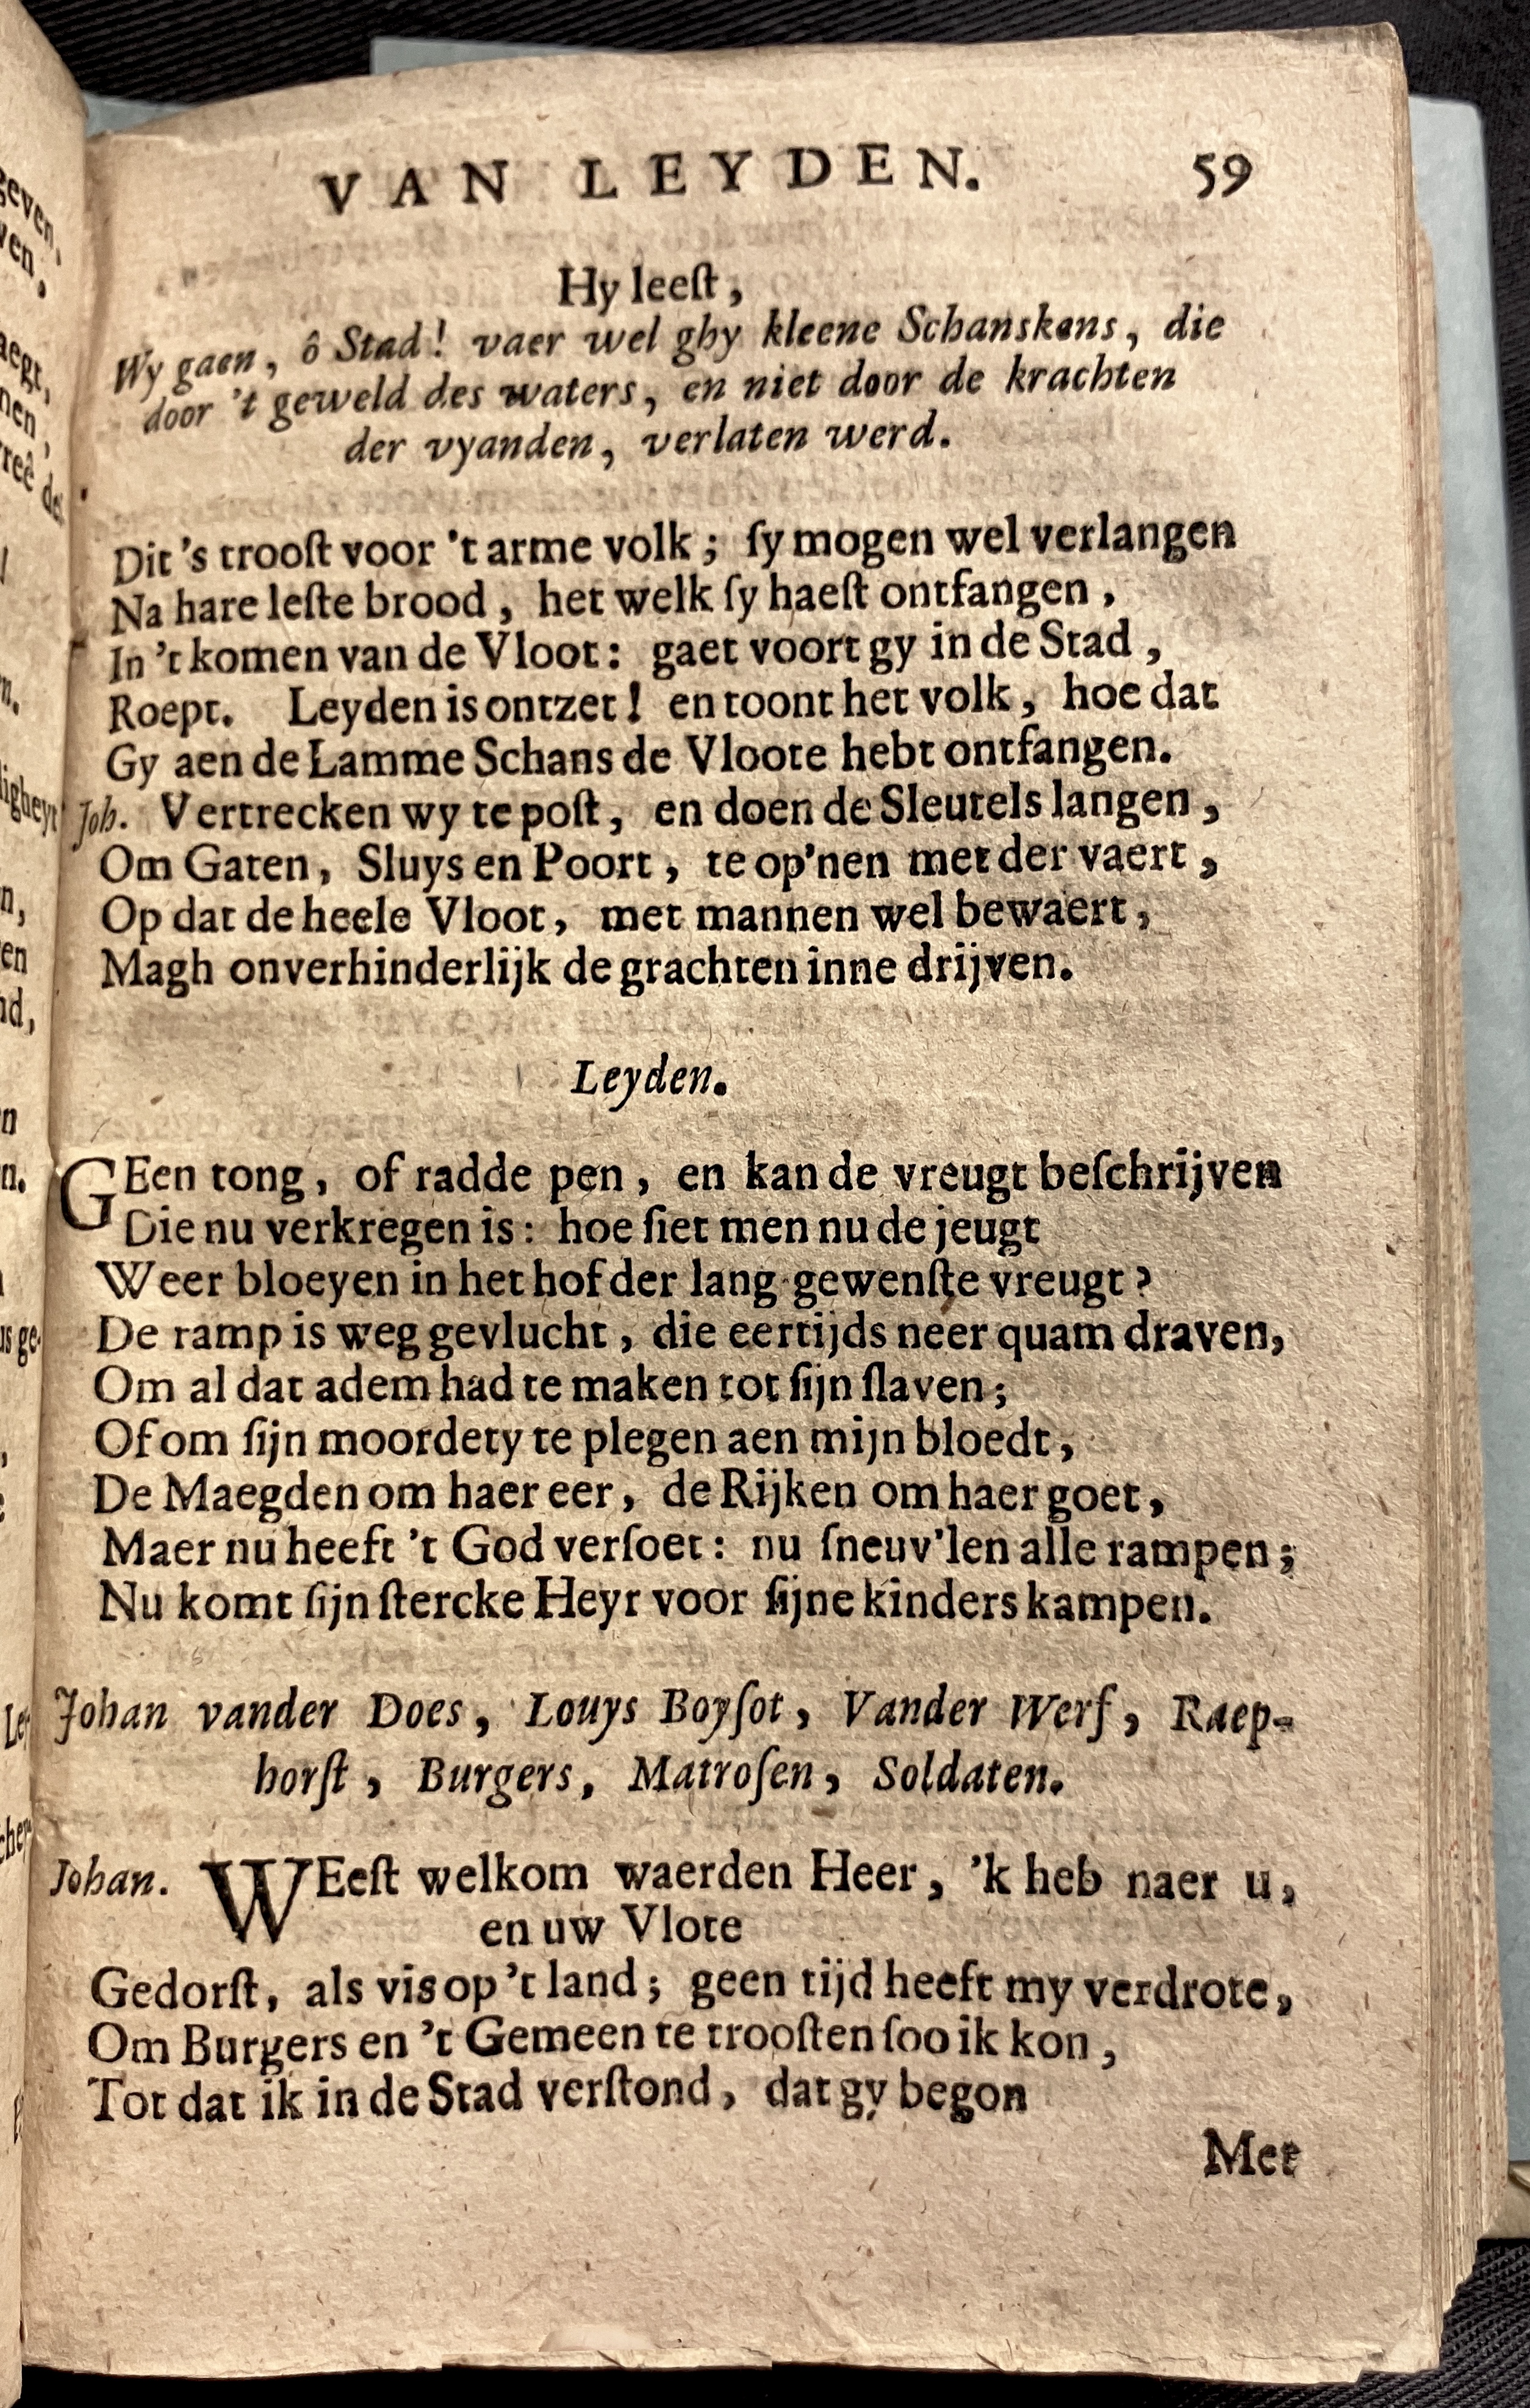 VAN LEYDEN. 59
Hy leeſt,
Wy gaen, ô Stad! vaer wel ghy kleene Schanskens, die
door 't geweld des waters, en niet door de krachten
der vyanden, verlaten werd.
Dit 's trooſt voor 't arme volk; ſy mogen wel verlangen
Na hare leſte brood, het welk ſy haeſt ontfangen,
In 't komen van de Vloot: gaet voort gy in de Stad,
Roept. Leyden is ontzet! en toont het volk, hoe dat
Gy aen de Lamme Schans de Vloote hebt ontfangen.
Joh. Vertrecken wy te poſt, en doen de Sleutels langen,
Om Gaten, Sluys en Poort, te op'nen met der vaert,
Op dat de heele Vloot, met mannen wel bewaert,
Magh onverhinderlijk de grachten inne drijven.
Leyden.
GEen tong, of radde pen, en kan de vreugt beſchrijven
Die nu verkregen is: hoe ſiet men nu de jeugt
Weer bloeyen in het hof der lang gewenſte vreugt?
De ramp is weg gevlucht, die eertijds neer quam draven,
Om al dat adem had te maken tot ſijn ſlaven;
Of om ſijn moordety te plegen aen mijn bloedt,
De Maegden om haer eer, de Rijken om haer goet,
Maer nu heeft 't God verſoet: nu ſneuv'len alle rampen;
Nu komt ſijn ſtercke Heyr voor ſijne kinders kampen.
Johan vander Does, Louys Boyſot, Vander Werf, Raep-
horſt, Burgers, Matroſen, Soldaten.
Johan. WEeſt welkom waerden Heer, 'k heb naer u,
en uw Vlote
Gedorſt, als vis op 't land; geen tijd heeft my verdrote,
Om Burgers en 't Gemeen te trooſten ſoo ik kon,
Tot dat ik in de Stad verſtond, dat gy begon
Met